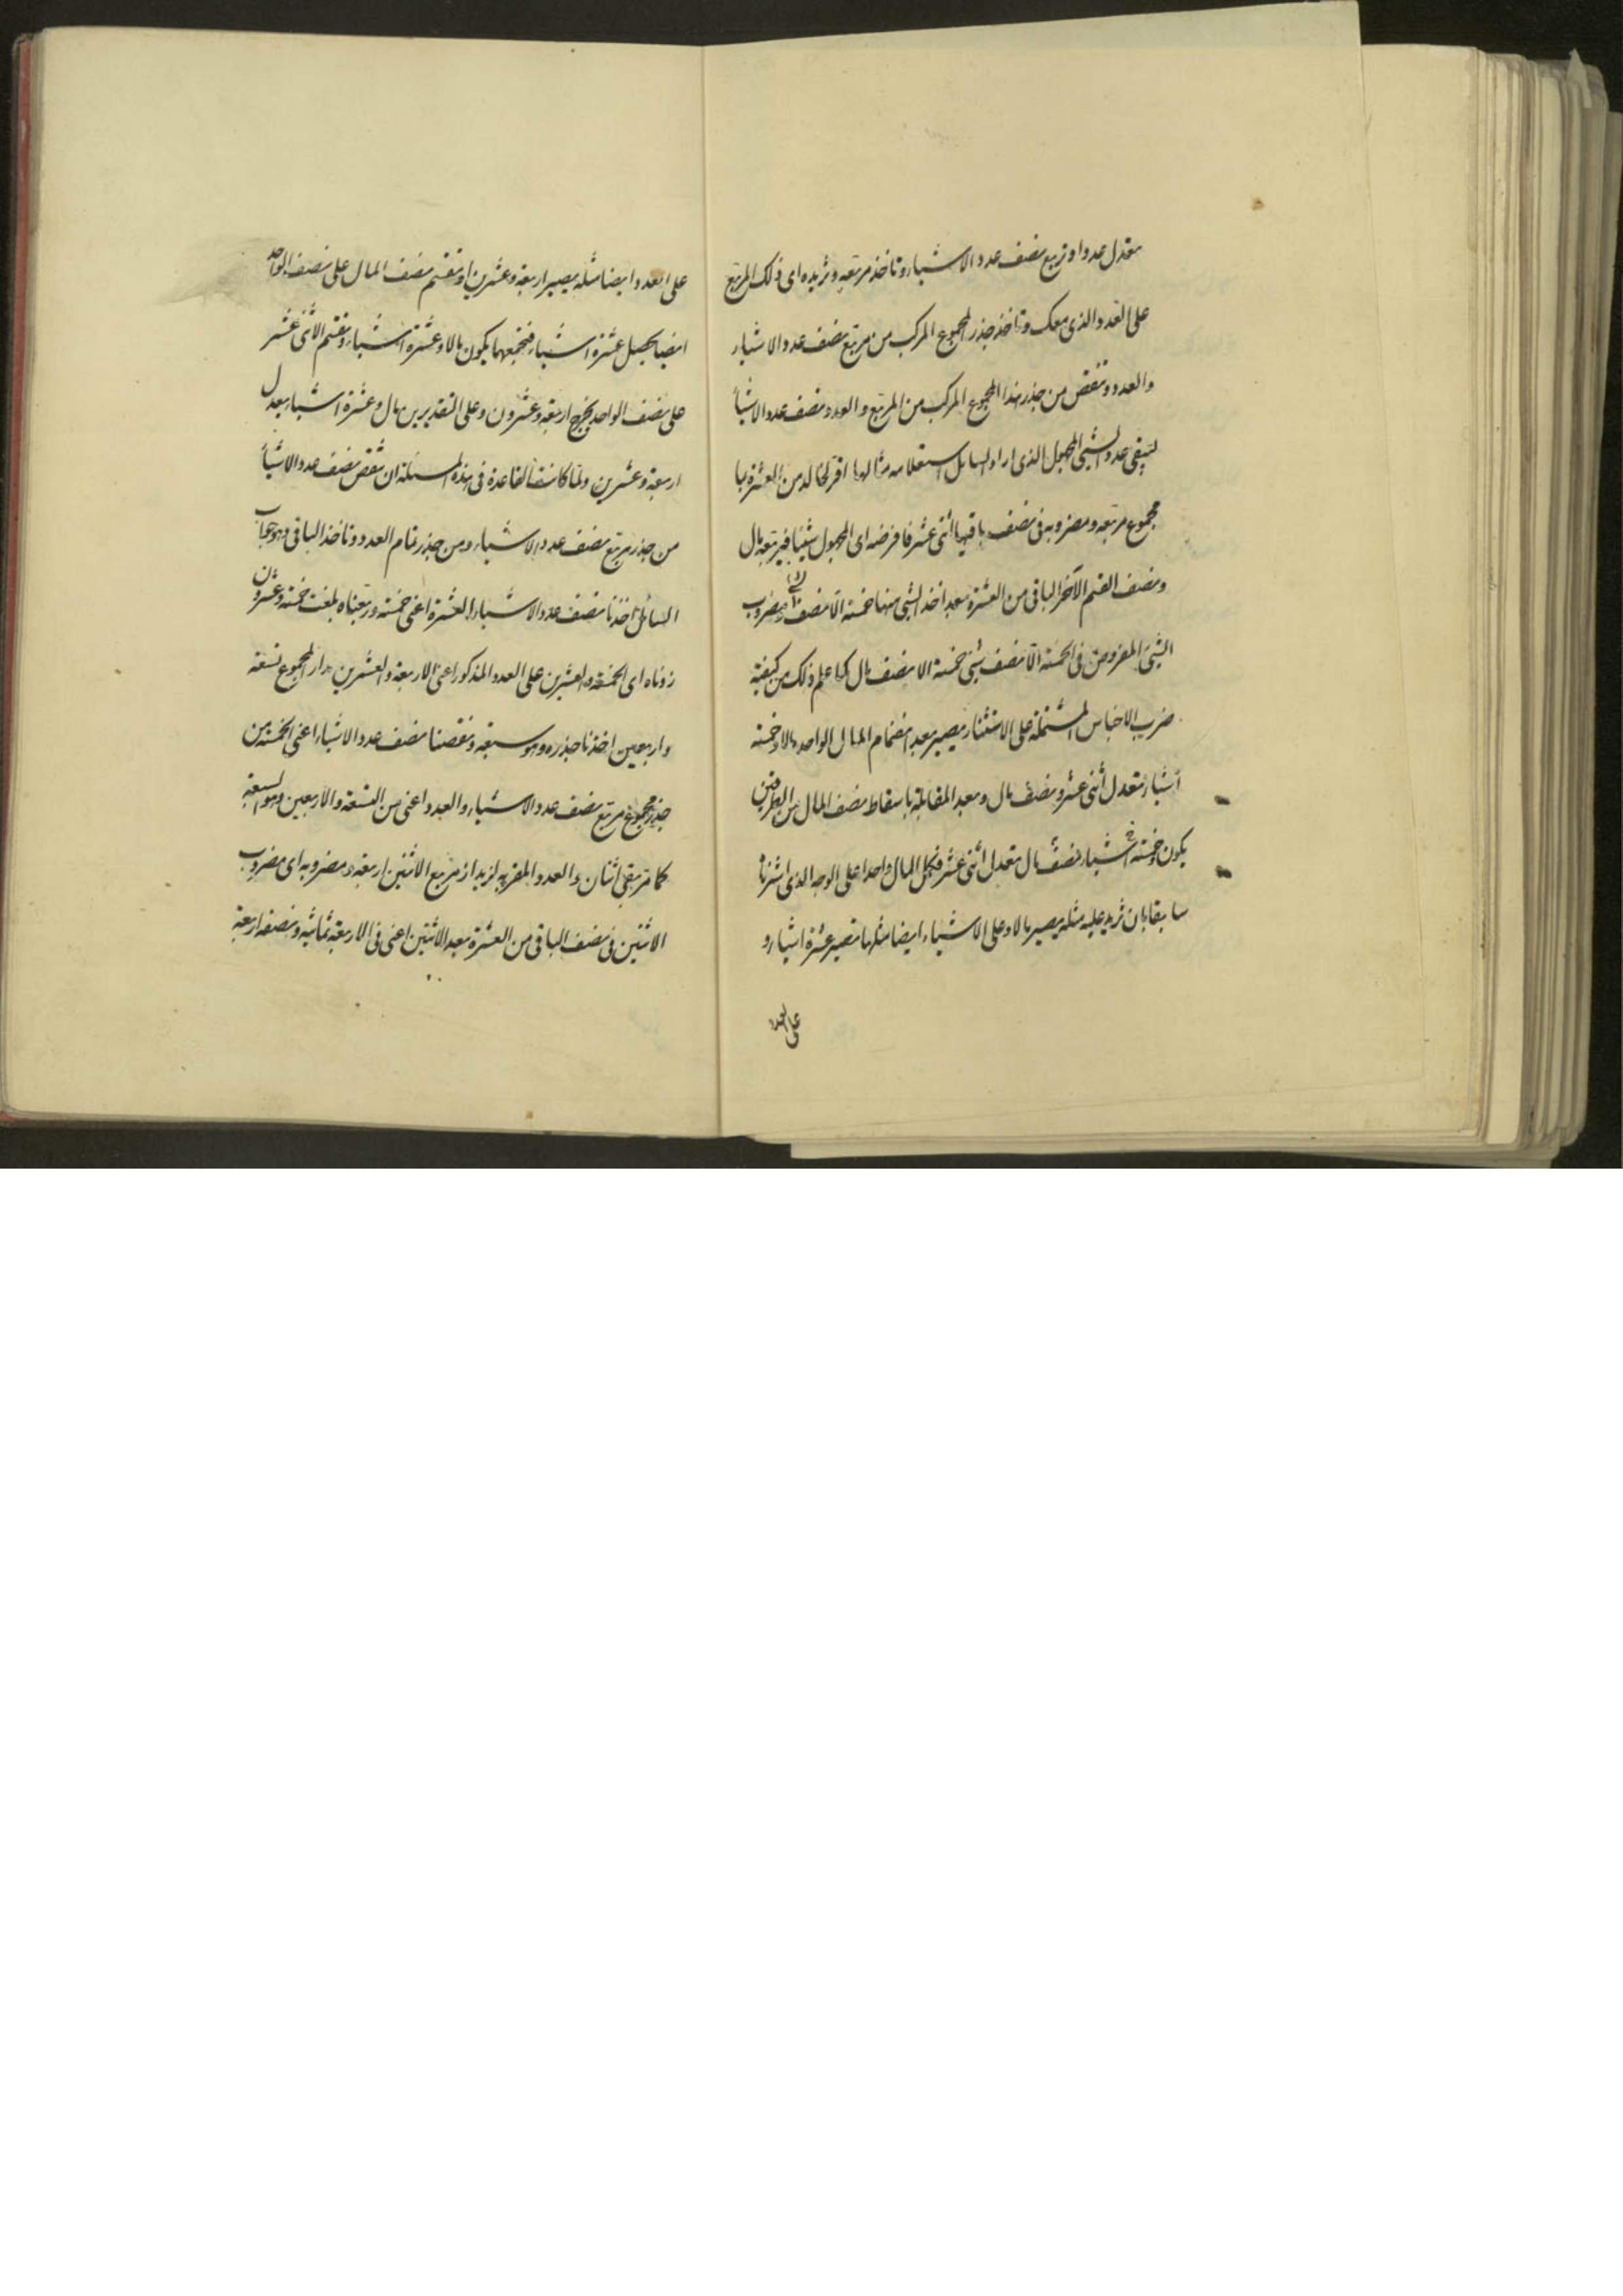 يعدل عددا وتربع نصف عدد الاشياء وتاخذ مربعه وتزيده اى ذلك المربع
على العدد الذى معك وتاخذ جذر المجموع المركب من مربع نصف عدد الاشياء
والعدد وتنقص من جذر هذا المجموع المركب من المربع والعدد نصف عدد الاشيأ
ليبقى عدد الشيئ المجهول الذى اراد السائل استعلامه مثالها اقر لخالد من العشرة بما
مجموع مربعه ومضروبه فى نصف باقيها اثنى عشر فافرضه اى المجهول شيئا فمربعه مال
ونصف القسم الآخر الباقى من العشرة بعد اخذ الشيئ منها خمسة الا نصف ومضروب
الشيئ المفروض فى الخمسة الا نصف شيئ خمسة الا نصف مال كما علم ذلك من كيفية
ضرب الاجناس المشتملة على الاستثناء يصير بعد انضمام المال الواحد مالا وخمسة
اشياء تعدل اثنى عشر ونصف مال وبعد المقابلة باسقاط نصف المال من الطرفين
يكون وخمسة اشياء نصف مال تعدل اثنى عشر فكمل المال واحدا على الوجه الذى اشرنا
سابقا بان تزيد عليه مثله يصير مالا وعلى الاشياء ايضا مثلها تصير عشرة اشياء و
على العدد
على العدد ايضا مثله يصير اربعة وعشرين او تقسم نصف المال على نصف الواحد
ايضا يحصل عشرة اشياء فتجمعهما يكون مالا وعشرة اشياء وتقسم الاثنى عشر
على نصف الواحد يخرج اربعة وعشرون وعلى التقديرين مال وعشرة اشياء يعدل
اربعة وعشرين ولما كانت القاعدة فى هذه المسئلة ان تنقص نصف عدد الاشيأ
من جذر مربع نصف عدد الاشياء ومن جذر تمام العدد وتاخذ الباقى وهو جواب
السائل اخذنا نصف عدد الاشياء العشرة اعنى خمسة وربعناه بلغت خمسة وعشرون
زدناه اى الخمسة والعشرين على العدد المذكور اعنى الاربعة والعشرين صار المجموع تسعة
واربعين اخذنا جذره وهو سبعة ونقصنا نصف عدد الاشياء اعنى الخمسة من
جذر مجموع مربع نصف عدد الاشياء والعدد اعنى من التسعة والاربعين وهو السبعة
كما مر بقى اثنان والعدد المقر به لزيد اذ مربع الاثنين اربعة ومضروبه اى مضروب
الاثنين فى نصف الباقى من العشرة بعد الاثنين اعنى فى الاربعة ثمانية ونصفه اربعة